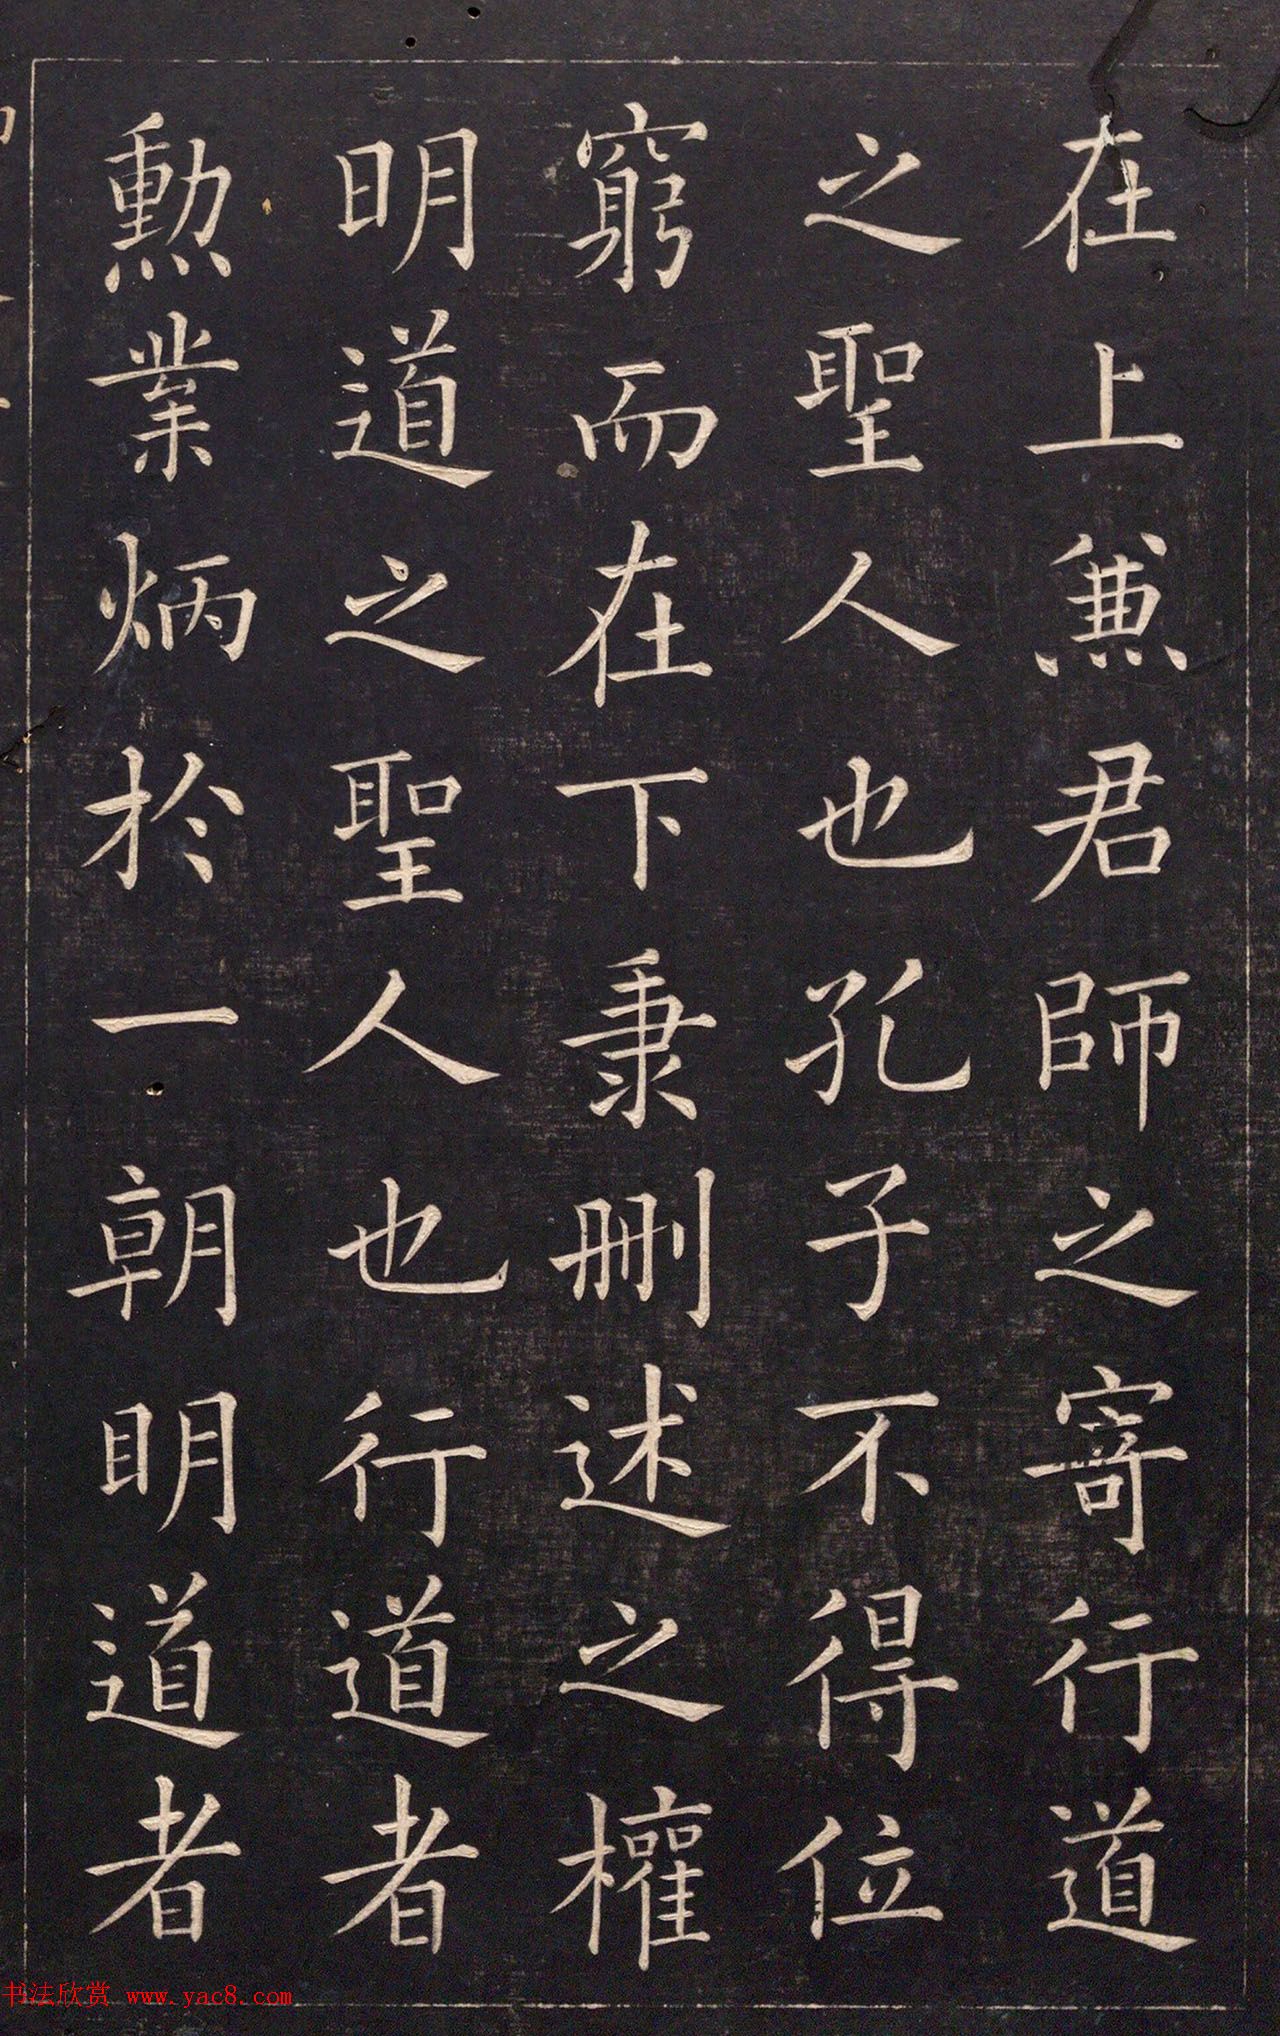 在上兼君師之寄行道
之聖人也孔子不得位
窮而在下秉刪述之權
明道之聖人也行道者
勳業炳於一朝明道者
书法欣赏 www.yac8.com